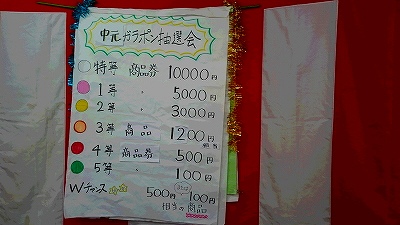 中元ガラポン抽選会
特等 商品券 10000円
1等 〃 5000円
2等 〃 3000円
3等 商品 1200円相当
4等 商品券 500円
5等 〃 100円
Wチャンス
500円 または 100円
相当の商品